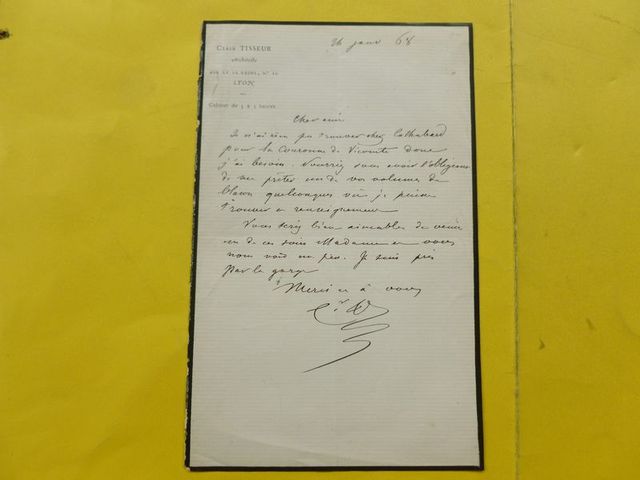 26 janv 68
CLAIR TISSEUR
architecte
LYON
Cabinet de 3 à 5 heures
Cher ami
Je n'ai rien pu trouver chez
pour la Couronne de Vicomte dont
j'ai besoin. Pourriez vous avoir l'obligeance
de me prêter un de vos volumes de
blason quelconques où je puisse
trouver ce renseignement
Vous seriez bien aimables de venir
un de ces soirs Madame et vous
nous voir un peu. Je suis pris
par la gorge
Merci et à vous